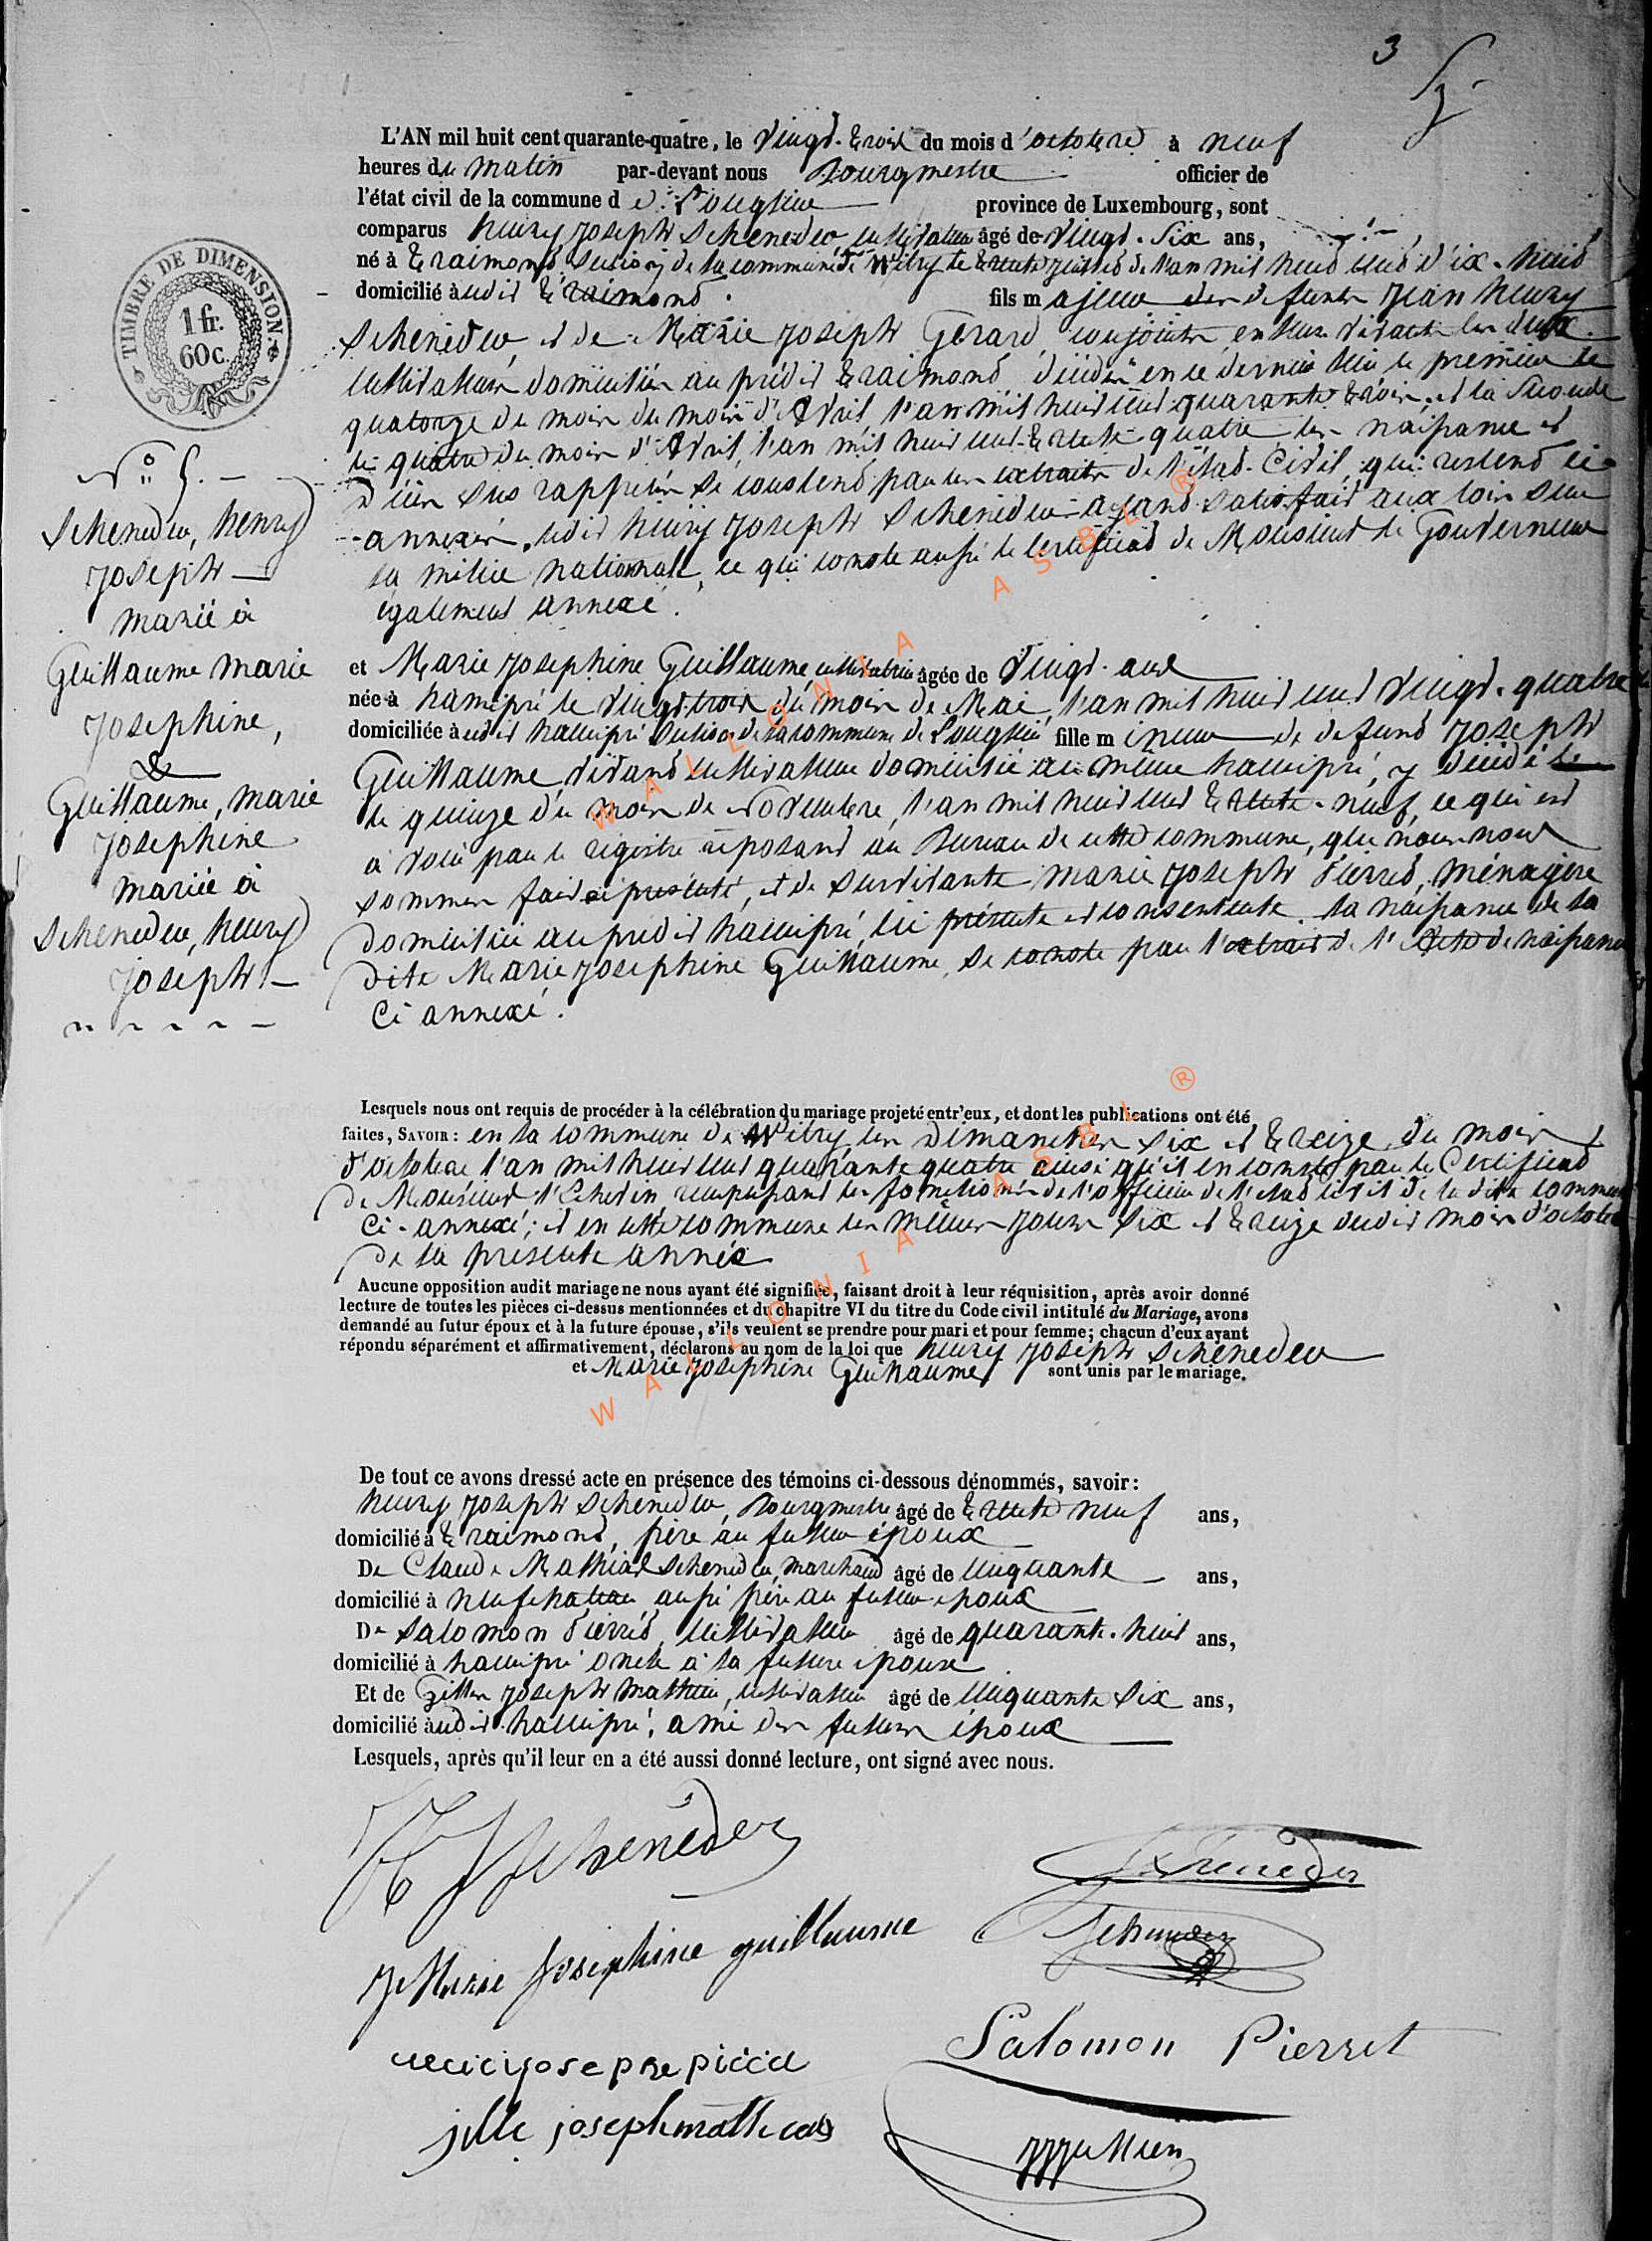 3
L'AN mil huit cent quarante-quatre, le Vingt-trois du mois d'octobre à neuf
heures du matin par-devant nous Bourgmestre officier de
l'état civil de la commune d e Louglier province de Luxembourg, sont
comparus henry Joseph Scheneder, cultivateur âgé de Vingt-six ans,
né à traimont, section de la commune de Witry le trente juillet de l'an mil huit cent dix-huit
domicilié audit traimont. fils majeur des defunts Jean henry
Scheneder, et de Marie Joseph Gerard, conjoints, en leur vivant les deux
cultivateurs domiciliés au prédit traimont, décédés en ce dernier lieu le premier le
quatorze du mois du mois d'Avril, l'an mil huit cent quarante trois, et la Seconde
le quatre du mois d'Avril, l'an mil huit cent-trente-quatre, les naissance et
décès sus rappelés se constend par les extraits de l'état-Civil, qui restend ci-
annexés, ledit henry Joseph Scheneder ayand satisfait aux lois sur
la milice nationale, ce qui conste aussi le certificat de Monsieur le Gouverneur
également annexé.
TIMBRE DE DIMENSION.
1 fr.
60 c.
N° 5.
Scheneder, henry
Joseph
marié à
Guillaume marie
Josephine,
&
Guillaume, marie
Josephine
mariée à
Scheneder, henry
Joseph
et Marie Josephine Guillaume, cultivatrice âgée de Vingt ans
née à hamipré le vingt trois du mois de Mai, l'an mil huit cent vingt-quatre
domiciliée audit hamipré section de la commune de Louglier fille mineure de defund Joseph
Guillaume, vivand cultivateur domicilié au même hamipré, y décédé
le quinze du mois de Novembre, l'an mil huit cent trente-neuf, ce qui est
à voir par le registre reposant au Bureau de cette commune, que nous nous
sommes fait représenté, et de survivante marie Joseph Pierret, ménagère
domiciliée au predit hamipré, ici présente et consentente. la naissance de la
dite Marie Josephine Guillaume, se conste par l'extrait de l'Acte de naissance
Ci annexé.
Lesquels nous ont requis de procéder à la célébration du mariage projeté entr'eux, et dont les publications ont été
faites, SAVOIR : en la commune de Witry, les Dimanches six et treize du mois
d'octobre l'an mil huit cent quarante quatre ainsi qu'il en conste par le Certificat
de Monsieur l'Echevin remplissant les fonctions de l'officier de l'etat civil de la dite commune
Ci-annexé; et en cette commune les mêmes jours six et treize dudit mois d'octobre
de la presente année
Aucune opposition audit mariage ne nous ayant été signifiée, faisant droit à leur réquisition, après avoir donné
lecture de toutes les pièces ci-dessus mentionnées et du chapitre VI du titre du Code civil intitulé du Mariage, avons
demandé au futur époux et à la future épouse, s'ils veulent se prendre pour mari et pour femme; chacun d'eux ayant
répondu séparément et affirmativement, déclarons au nom de la loi que henry Joseph Scheneder
et Marie Josephine Guillaume sont unis par le mariage.
De tout ce avons dressé acte en présence des témoins ci-dessous dénommés, savoir :
henry Joseph Scheneder, Bourgmestre âgé de trente neuf ans,
domicilié à traimont, frère au futur époux
De Claude Mathias Scheneder, marchand âgé de cinquante ans,
domicilié à neufchateau aussi frère au futur époux
De Salomon Pierret, cultivateur âgé de quarante-huit ans,
domicilié à hamipré oncle à la future épouse
Et de Gilles Joseph Mathieu, cultivateur âgé de cinquante six ans,
domicilié audit hamipré, ami des futurs époux
Lesquels, après qu'il leur en a été aussi donné lecture, ont signé avec nous.
H J Scheneder
Scheneder
Marie Josephine guillaume
Scheneder
Salomon Pierret
jille joseph mathieu
WALLONIA ASBL ®
WALLONIA ASBL ®